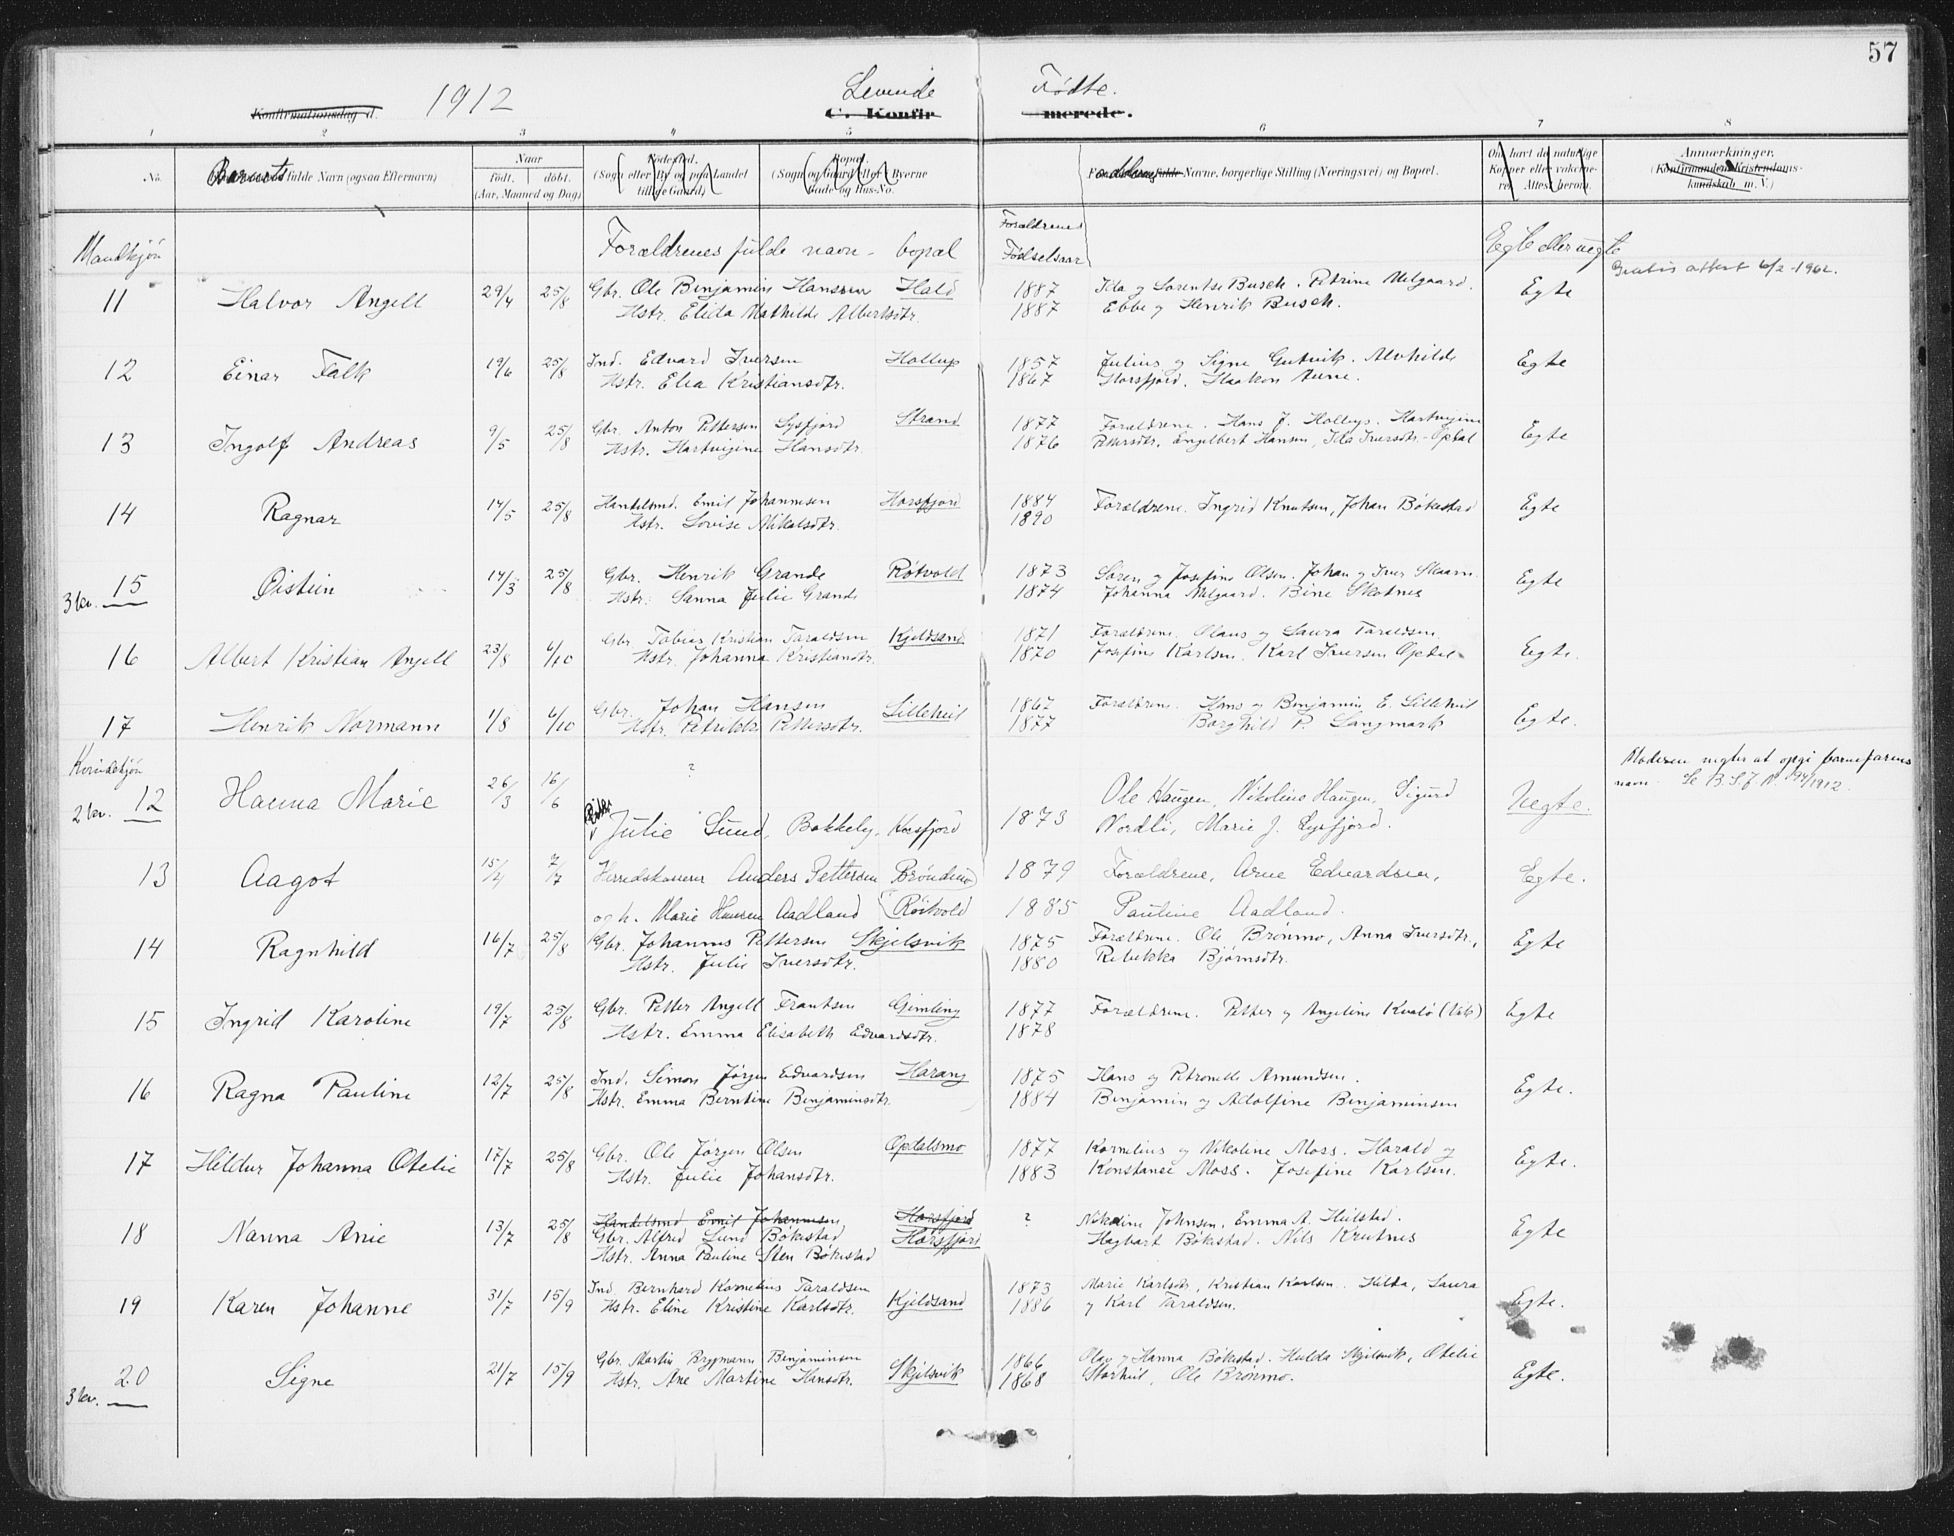 57
1912 Levende Fødte.
Konfirmationsdag d. C. Konfirmerede.
1 2 3 4 5 6 7 8
No. Barnets fulde Navn (ogsaa Efternavn) Naar Født. døbt. (Aar, Maaned og Dag) Fødested. (Sogn eller By og paa Landet tillige Gaard) Bopæl. (Sogn og Gaard eller i Byerne Gade og Hus-No. Navne, borgerlige Stilling (Næringsvei) og Bopæl. Om havt de naturlige Kopper eller vakcinerede. Attest herom. Anmærkninger. (Konfirmandens Kristendomskundskab m. V.)
Mandkjøn Forældrenes fulde navn - bopæl Forældrenes Fødselsaar Egte eller uegte
Gratis attest 6/2-1962.
11 Halvor Angell 29/4 25/8 Gbr. Ole Benjamin Hanssen Hald 1887 Ida og Sørentse Busch. Petrine Melgaard. Egte
Hstr. Elida Mathilde Albertsdtr. 1887 Ebbe og Henrik Busch.
12 Einar Falk 19/6 25/8 Ind. Edvard Iversen Hollup 1857 Julius og Signe Gutvik. Alvhilde Egte
Hstr. Elea Kristiansdtr. 1867 Horsfjord. Haakon Aune.
13 Ingolf Andreas 9/5 25/8 Gbr. Anton Pettersen Lysfjord Strand 1877 Forældrene. Hans J. Hollup. Hartvigine Egte
Hstr. Hartvigine Hansdtr. 1876 Pettersdtr. Engelbert Hansen, Ida Iversdtr. Opdal
14 Ragnar 14/5 25/8 Handelsmd. Emil Johannesen Horsfjord 1884 Forældrene. Ingrid Knutsen, Johan Bökestad Egte
Hstr. Lovise Nikolsdtr. 1890
15 Øistein 14/3 25/8 Gbr. Henrik Grande Røtvold 1873 Søren og Josefine Olsen. Johan og Iver Skaarn. Egte
3 lev. Hstr. Sanna Julie Grande 1874 Johanna Melgaard. Bine Skotnes
16 Albert Kristian Angell 23/8 6/10 Gbr. Tobias Kristian Taraldsen Kjeldsand 1871 Forældrene. Olaus og Laura Taraldsen. Egte.
Hstr. Johanna Kristiansdtr. 1870 Josefine Karlsen. Karl Iversen Opdal
17 Henrik Normann 1/8 6/10 Gbr. Johan Hansen Lilleheil 1867 Forældrene. Hans og Benjamin E. Lilleheil Egte.
Hstr. Petrikke Pettersdtr. 1877 Borghild P. Langmark
Kvindekjøn
12 Hanna Marie 26/3 16/6 ? Ole Haugen, Nikolius Haugen, Sigurd Uegte. Moderen negter at opgi barnefarens
2 lev. Pike Julie Lund, Bakkely, Horsfjord 1873 Nordli, Marie J. Lysfjord. navn. Se B.S.J. N. 94/1912.
13 Aagot 15/4 7/7 Herredskasserer Anders Pettersen Bröndmo 1879 Forældrene, Arne Edvardsen, Egte.
og h. Marie Hansen Aadland Röitvold 1885 Pauline Aadland.
14 Ragnhild 16/7 25/8 Gbr. Johannes Pettersen Skjelsvik 1875 Forældrene. Ole Brønmo, Anna Iversdtr., Egte
Hstr. Julie Iversdtr. 1880 Rebekka Bjørnsdtr.
15 Ingrid Karoline 19/7 25/8 Gbr. Petter Angell Frantsen Gimling 1877 Forældrene. Petter og Angeline Kvalø (Vik) Egte
Hstr. Emma Elisabeth Edvardsdtr. 1878
16 Ragna Pauline 12/7 25/8 Ind. Simon Jørgen Edvardsen Harang 1875 Hans og Petronelle Amundsen. Egte.
Hstr. Emma Berntine Benjaminsdtr. 1884 Benjamin og Adolfine Benjaminsen
17 Heldur Johanna Otelie 17/7 25/8 Gbr. Ole Jørgen Olsen Opdalsmo 1877 Kornelius og Nikoline Moss. Harald og Egte.
Hstr. Julie Johansdtr. 1883 Konstanse Moss. Josefine Karlsen.
18 Nanna Anie 13/7 25/8 Handelsmd Emil Johannesen Horsfjord ? Nikoline Johnsen, Emma A. Heilstad. Egte
Gbr. Alfred Lund Bøkestad Horsfjord Hagbart Bökestad. Nils Krutnes
Hstr. Anna Pauline Sten Bökestad
19 Karen Johanne 31/7 15/9 Ind Bernhard Kornelius Taraldsen 1873 Marie Karlsdtr, Kristian Karlsen. Hilda, Laura Egte.
Hstr. Eline Kristine Karlsdtr. Kjeldsand 1886 og Karl Taraldsen.
20 Signe 21/7 15/9 Gbr. Martin Benjaminsen Skjelsvik 1866 Olav og Hanna Bökestad. Hulda Skjelsvik, Otelie Egte.
3 lev. Hstr. Ane Martine Hansdtr. 1868 Storheil, Ole Brønmo.